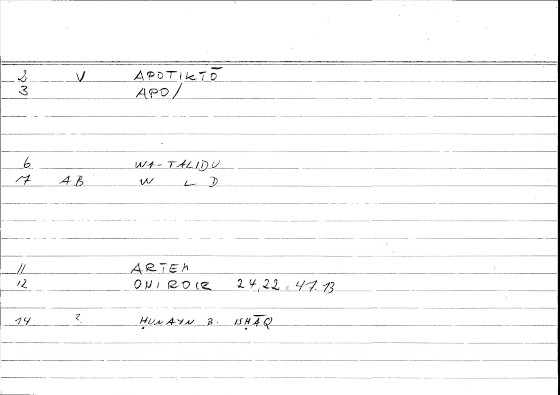 2 V APOTIKTŌ
3 APO/
6 WA-TALIDU
7 AB W L D
11 ARTEM
12 ONIROCR 24,22 = 47.13
14 ? ḤUNAYN B. ISḤĀQ